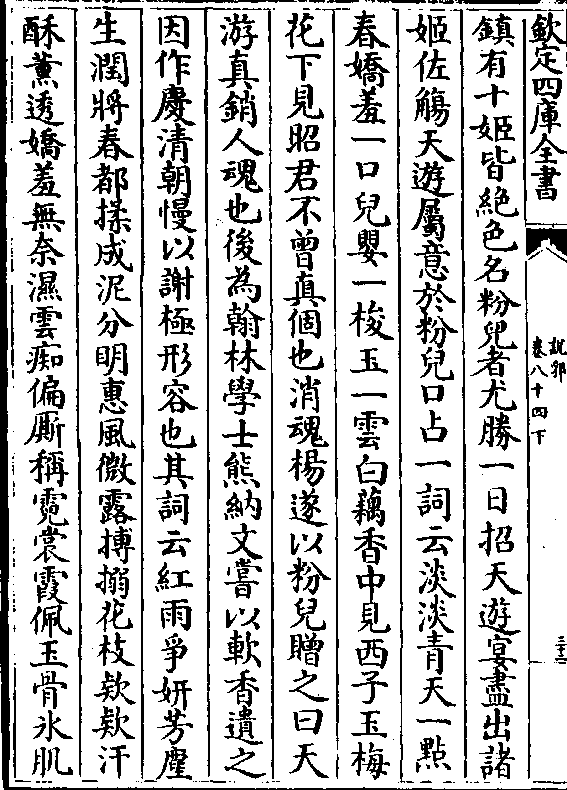 欽定四庫全書
說郛
卷八十四下
三十二
鎮有十姬皆絶色名粉兒者尤勝一日招天遊宴盡出諸
姬佐觴天遊屬意於粉兒口占一詞云淡淡青天一㸃
春嬌羞一口兒嬰一梭玉一雲白藕香中見西子玉梅
花下見昭君不曾真個也消魂楊遂以粉兒贈之曰天
游真銷人魂也後為翰林學士熊納文嘗以軟香遺之
因作慶清朝慢以謝極形容也其詞云紅雨爭妍芳塵
生潤將春都揉成泥分明惠風微露搏搦花枝欵欵汗
酥薰透嬌羞無奈濕雲痴偏厮稱霓裳霞佩玉骨氷肌